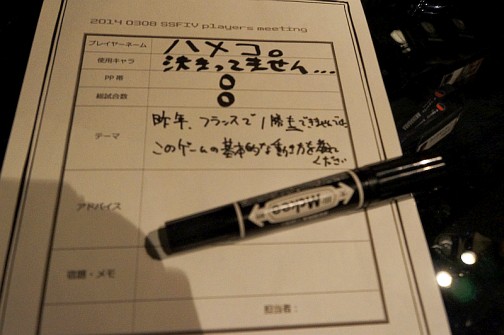 2014 0308 SSFIV players meeting
プレイヤーネーム ハメコ。
使用キャラ 決まってません...
PP帯 0
総試合数 0
テーマ 昨年、フランスで1勝もできませんでした
このゲームの基本的な動き方を教えて
ください
アドバイス
宿題・メモ
担当者:
Mckee